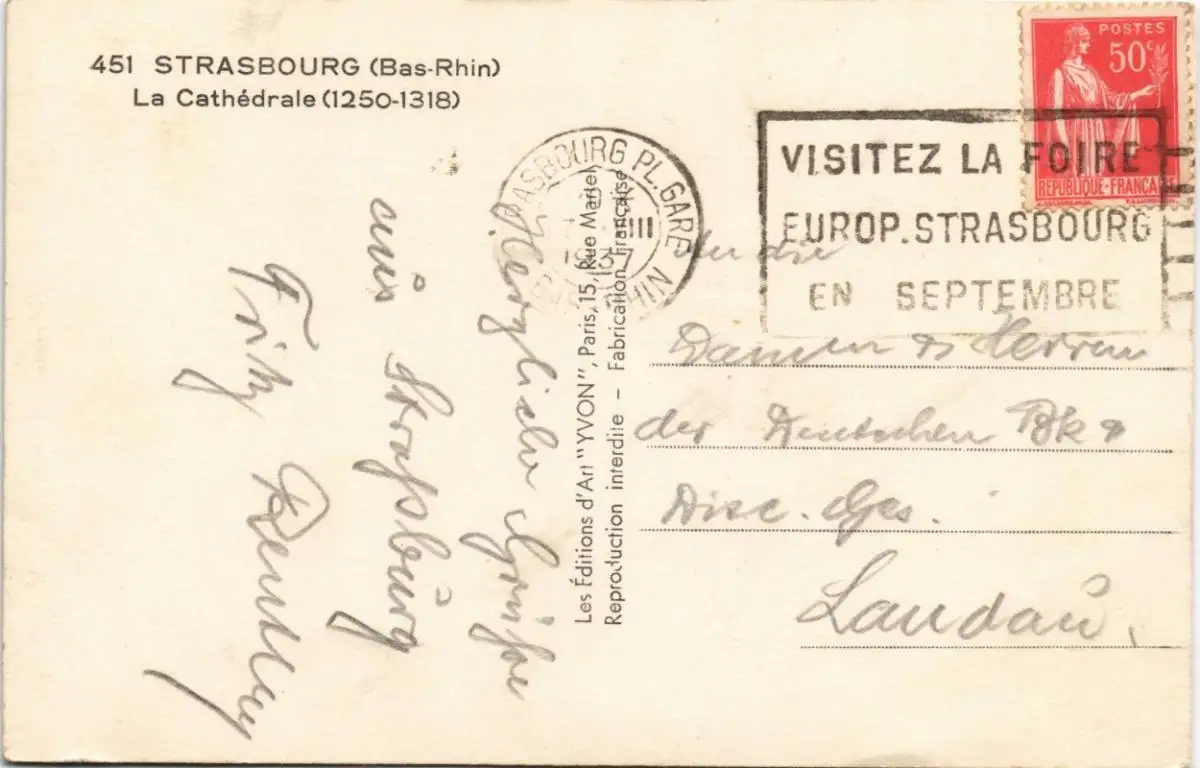 451 STRASBOURG (Bas-Rhin)
La Cathédrale (1250-1318)
POSTES
50c
RÉPUBLIQUE-FRANÇA
STRASBOURG PL. GARE
III
1937
RHIN
VISITEZ LA FOIRE
EUROP. STRASBOURG
EN SEPTEMBRE
Herzliche Grüße
aus Straßburg
Fritz
Les Éditions d'Art "YVON", Paris, 15, Rue Martel
Reproduction interdite – Fabrication Française
An die
Damen & Herren
der Deutschen Bk &
Disc. Ges.
Landau,